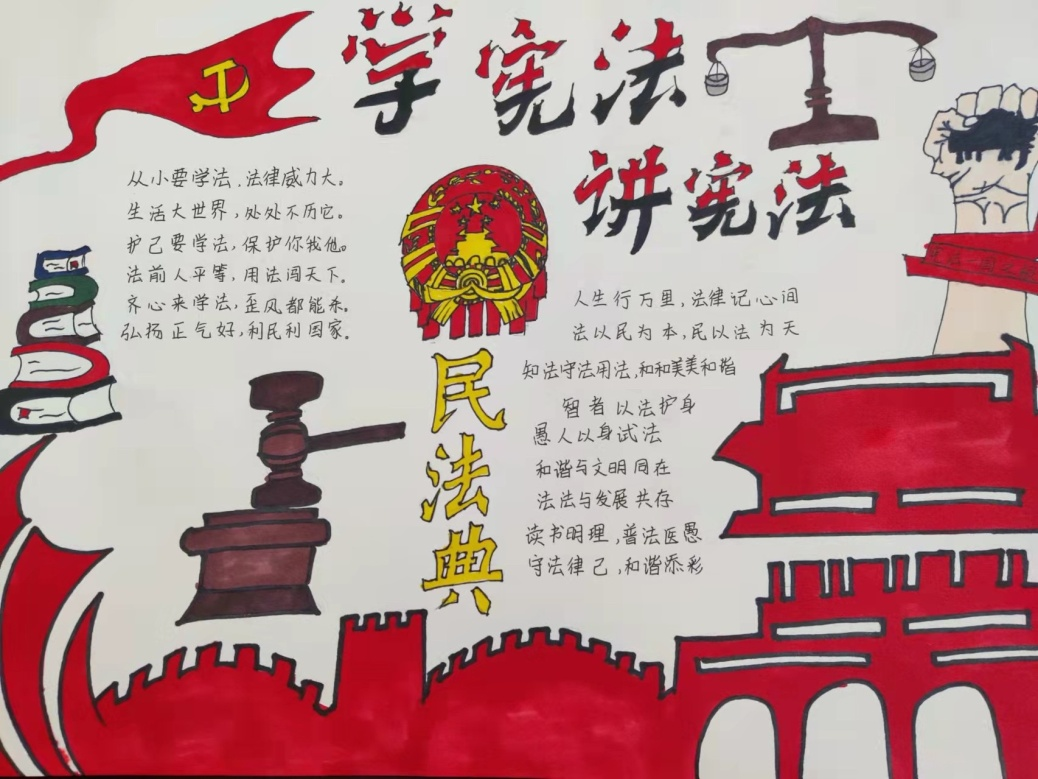 学宪法
讲宪法
从小要学法,法律威力大。
生活大世界,处处不历它。
护己要学法,保护你我他。
法前人平等,用法闯天下。
齐心来学法,歪风都能杀。
弘扬正气好,利民利国家。
民法典
人生行万里,法律记心间
法以民为本,民以法为天
知法守法用法,和和美美和谐
智者以法护身
愚人以身试法
和谐与文明同在
法法与发展共存
读书明理,普法医愚
守法律己,和谐添彩